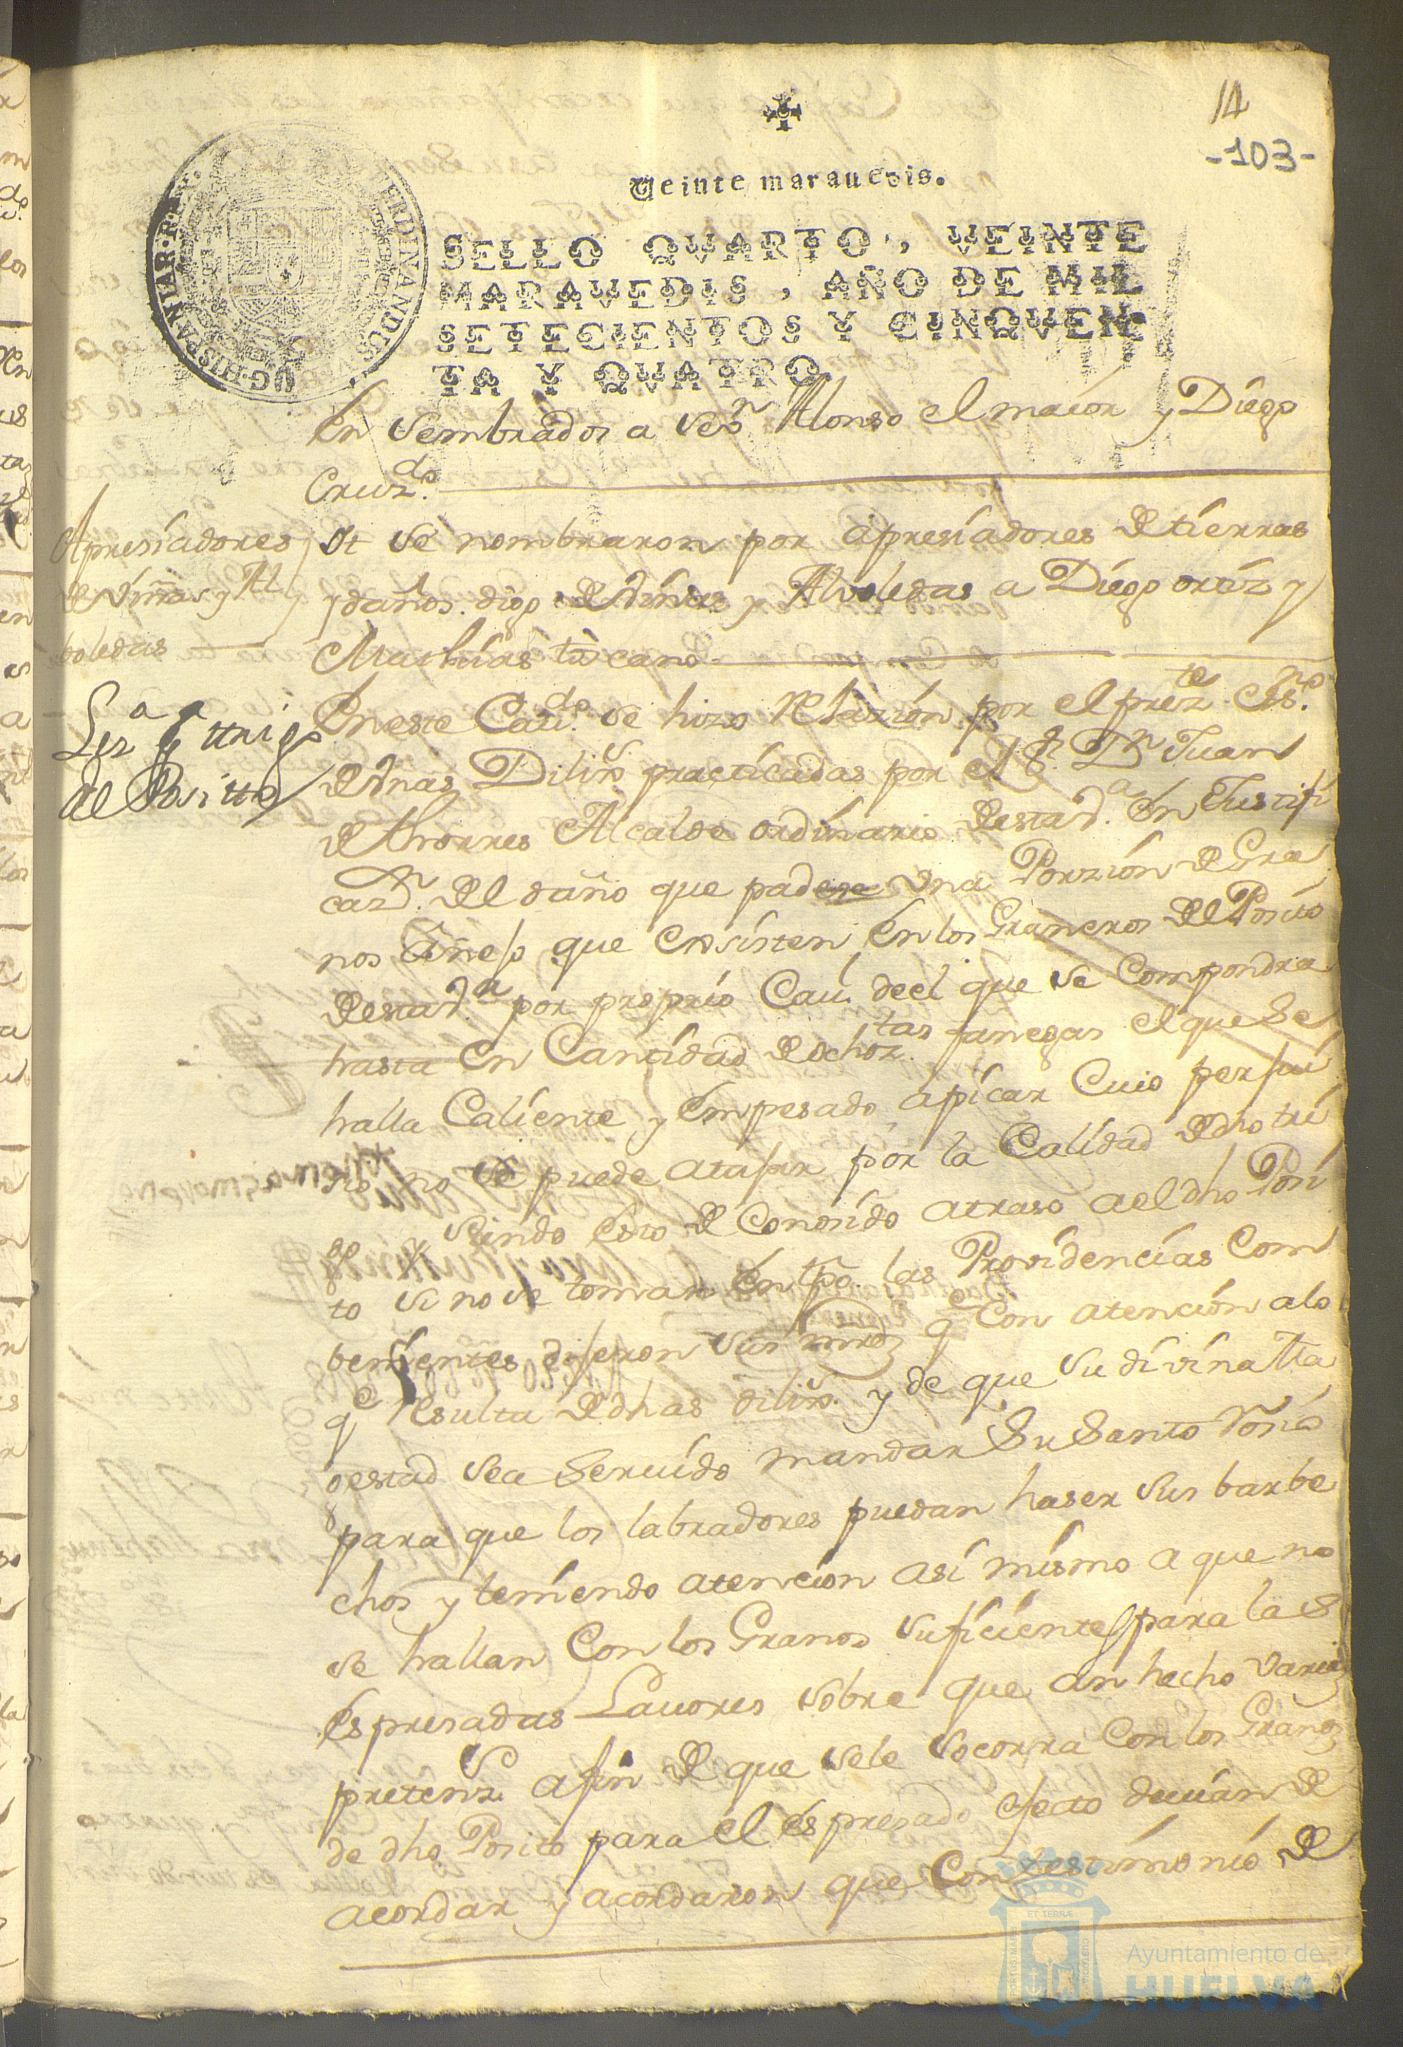 14
-103-
Veinte maravedis.
SELLO QVARTO, VEINTE
MARAVEDIS, AÑO DE MIL
SETECIENTOS Y CINQVEN-
TA Y QVATRO
FERDINANDUS
HISPANIAR
En Sembrados a Sevn Alonso el maior y Diego
Cruzdo.
Apresiadores
de viñas y Al
boledas
Yt Se nombraron por apresiadores de tierras
y daños digo de viñas y Alboledas a Diego ortiz y
Mathias tucano
Liza ttrigo
del Positto
En este Cavdo Se hizo Relazion por el presте Esno
de Unas Dilixs practicadas por el Sr Dn Juan
de thorres Alcalde ordinario de esta Va En Justifi
cazn del daño que padese Una Porzion de Gra
nos Añejo que Existen En los Graneros del Posito
de esta Va por proprio Cau. de el que Se Compondra
hasta En Cantidad de ochoztas fanegas el que Se
halla Caliente y Empesado a picar Cuio perjui
sio no Se puede atajar por la Calidad de dho tri
go y Siendo Esto de Conosido atraso a el dho Posi
to Si no Se toman En tpo las Providencias Com
benientes dijeron Sus mrds qe Con atencion a lo
qe resulta de dhas dilixs y de que Su divina Ma
gestad Sea Servido mandar Su Santo Rosio
para que los labradores puedan haser Sus barbe
chos y teniendo atencion asi mismo a que no
se hallan Con los Granos Suficientes para las
Espresadas Lavores Sobre que an hecho varias
pretenz. a fin de que Se le Socorra Con los Granos
de dho Posito para el espresado efecto devian de
acordar y acordaron que Con testimonio de
Ayuntamiento de
HUELVA